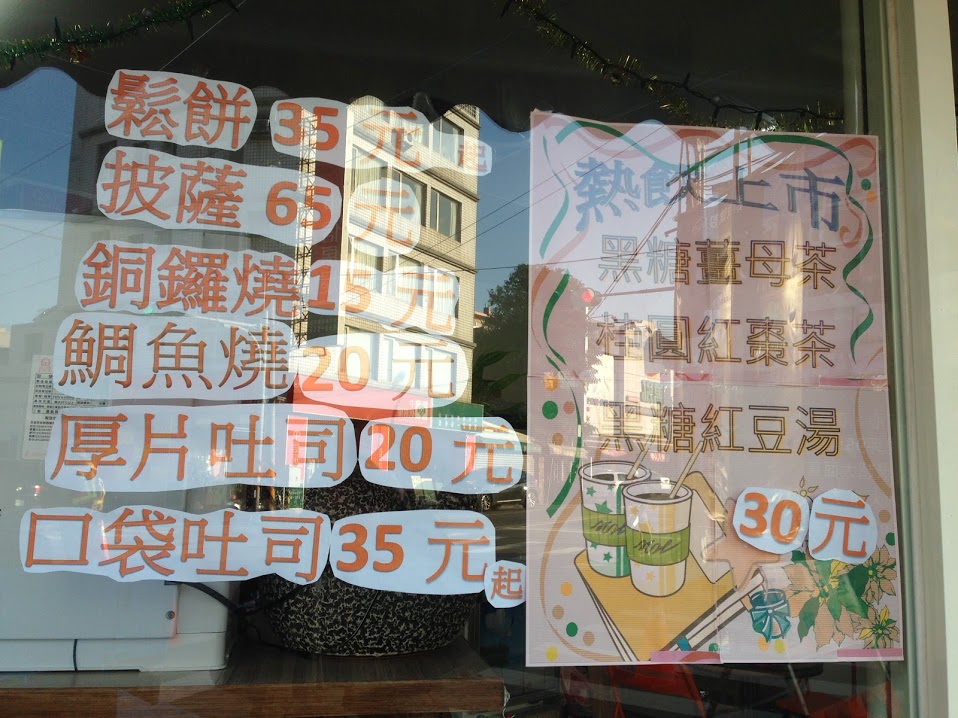 鬆餅 35元起
披薩 65元
銅鑼燒 15元
鯛魚燒 20元
厚片吐司 20元
口袋吐司 35元起
熱飲上市
黑糖薑母茶
桂圓紅棗茶
黑糖紅豆湯
30元